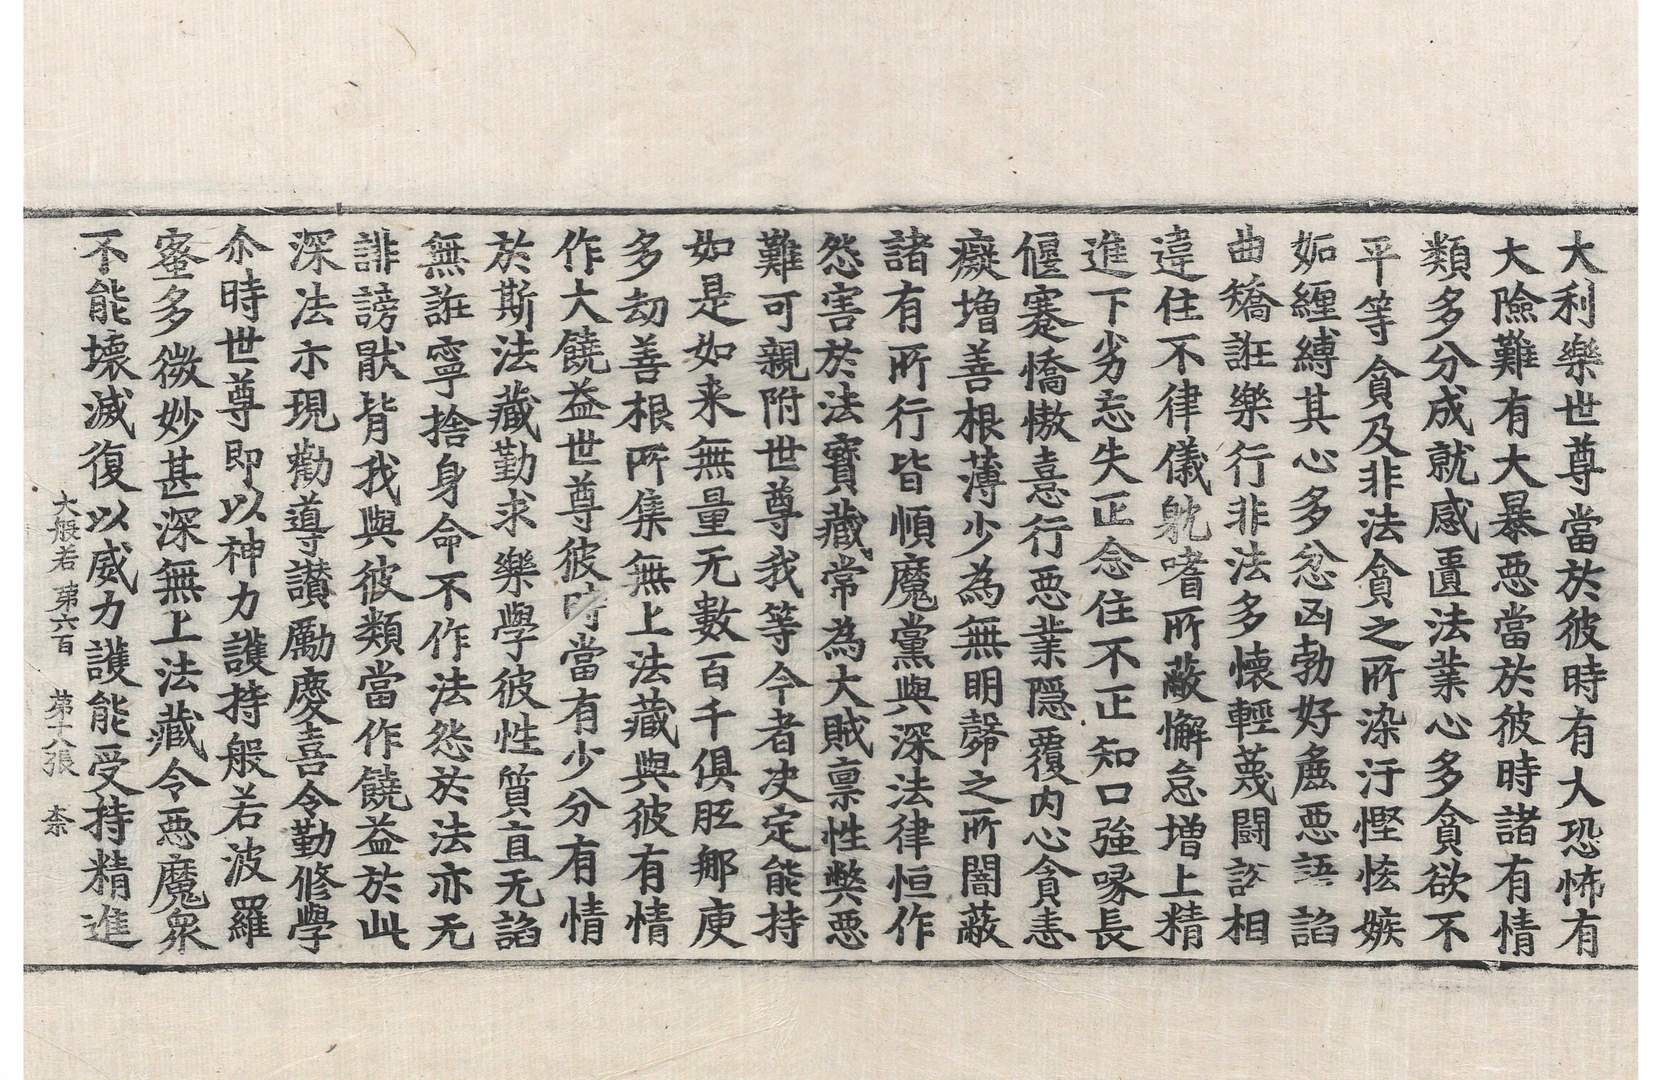 大利樂世尊當於彼時有大恐怖有
大險難有大暴惡當於彼時諸有情
類多分成就感匱法業心多貪欲不
平等貪及非法貪之所染汙慳悋嫉
妬纏縛其心多忿凶勃好麁惡語諂
曲矯誑樂行非法多懷輕蔑鬪訟相
違住不律儀躭嗜所蔽懈怠增上精
進下劣忘失正念住不正知口強喙長
偃蹇憍慠憙行惡業隱覆內心貪恚
癡增善根薄少為無明㲉之所闇蔽
諸有所行皆順魔黨與深法律恒作
怨害於法寶藏常為大賊禀性獘惡
難可親附世尊我等今者决定能持
如是如来無量无數百千俱胝那庾
多劫善根所集無上法藏與彼有情
作大饒益世尊彼時當有少分有情
於斯法藏勤求樂學彼性質直无諂
無誑寧捨身命不作法怨於法亦无
誹謗猒背我與彼類當作饒益於此
深法亦現勸導讃勵慶喜令勤修學
尒時世尊即以神力護持般若波羅
蜜多微妙甚深無上法藏令惡魔衆
不能壞滅復以威力護能受持精進
大般若 第六百 第十八張 柰